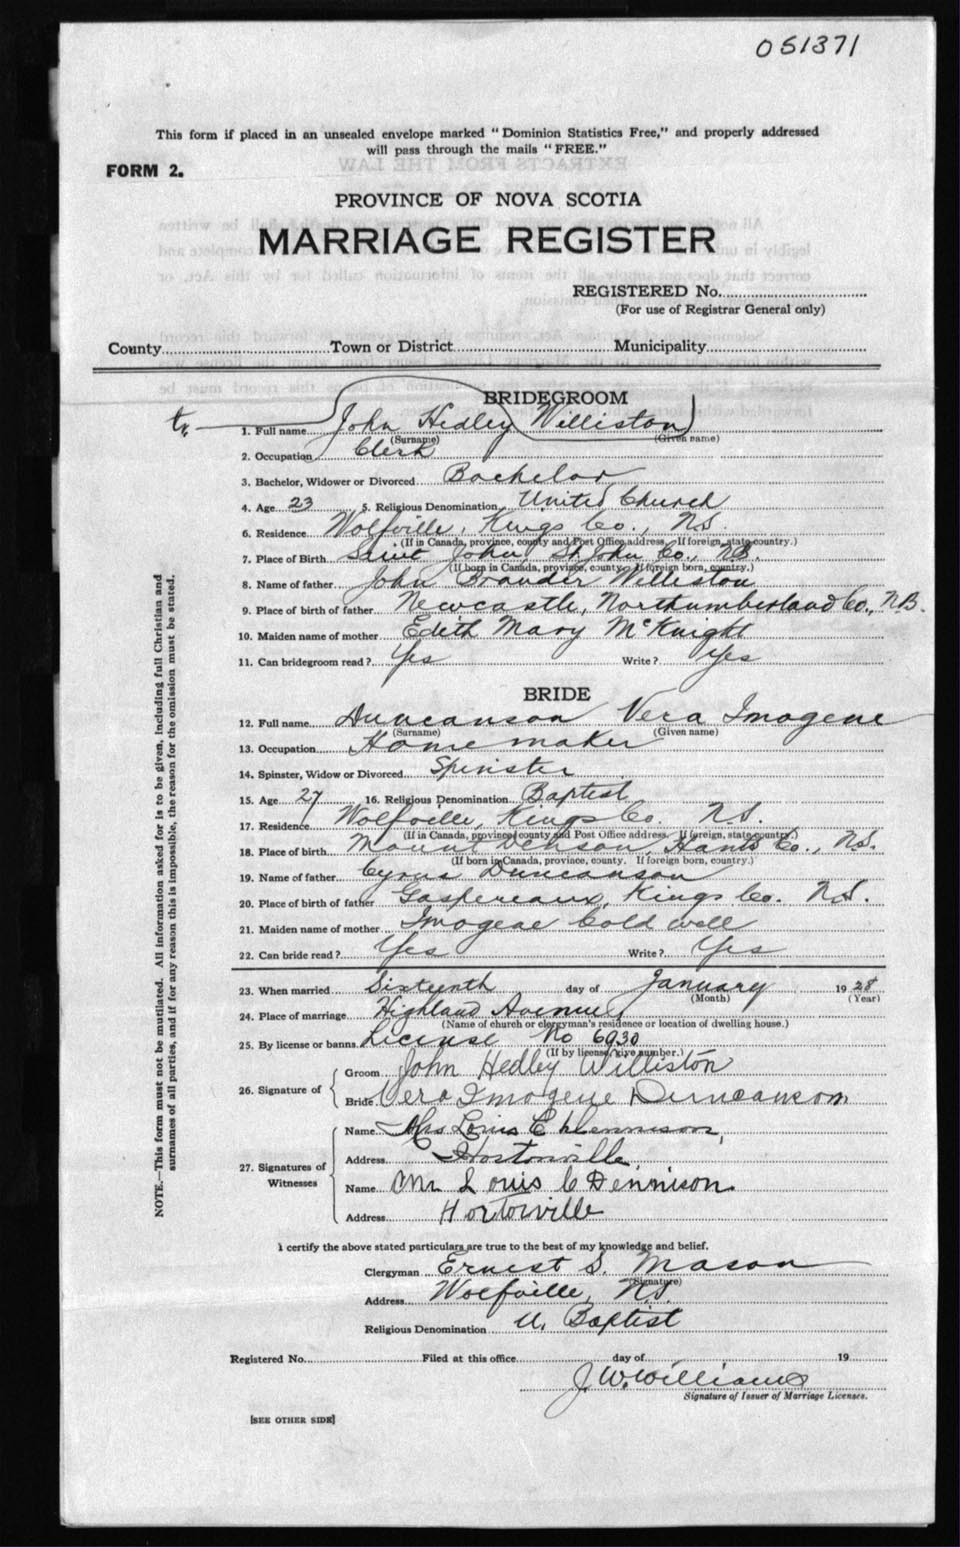 051371
This form if placed in an unsealed envelope marked "Dominion Statistics Free," and properly addressed
will pass through the mails "FREE."
FORM 2.
PROVINCE OF NOVA SCOTIA
MARRIAGE REGISTER
REGISTERED No.
(For use of Registrar General only)
County Town or District Municipality
BRIDEGROOM
tr. 1. Full name John Hedley Williston
(Surname) (Given name)
2. Occupation Clerk
3. Bachelor, Widower or Divorced Bachelor
4. Age 23 5. Religious Denomination United Church
6. Residence Wolfville, Kings Co., N.S.
(If in Canada, province, county and Post Office address. If foreign, state country.)
7. Place of Birth Saint John, St. John Co., N.B.
(If born in Canada, province, county. If foreign born, country.)
8. Name of father John Brander Williston
9. Place of birth of father Newcastle, Northumberland Co., N.B.
10. Maiden name of mother Edith Mary McKnight
11. Can bridegroom read? Yes Write? Yes
BRIDE
12. Full name Duncanson Vera Imogene
(Surname) (Given name)
13. Occupation Home maker
14. Spinster, Widow or Divorced Spinster
15. Age 27 16. Religious Denomination Baptist
17. Residence Wolfville, Kings Co. N.S.
(If in Canada, province, county and Post Office address. If foreign, state country.)
18. Place of birth Mount Denson, Hants Co., N.S.
(If born in Canada, province, county. If foreign born, country.)
19. Name of father Cyrus Duncanson
20. Place of birth of father Gaspereaux, Kings Co. N.S.
21. Maiden name of mother Imogene Coldwell
22. Can bride read? Yes Write? Yes
23. When married Sixteenth day of January 1928
(Month) (Year)
24. Place of marriage Highland Avenue
(Name of church or clergyman's residence or location of dwelling house.)
25. By license or banns License No 6930
(If by license, give number.)
26. Signature of Groom John Hedley Williston
Bride Vera Imogene Duncanson
27. Signatures of Witnesses Name Mrs Louis C Dennison,
Address Hortonville,
Name Mr Louis C Dennison
Address Hortonville
I certify the above stated particulars are true to the best of my knowledge and belief.
Clergyman Ernest S. Mason
(Signature)
Address Wolfville, N.S.
Religious Denomination U. Baptist
Registered No. Filed at this office day of 19
J. W. Williams
Signature of Issuer of Marriage Licenses.
[SEE OTHER SIDE]
NOTE.—This form must not be mutilated. All information asked for is to be given, including full Christian and
surnames of all parties, and if for any reason this is impossible, the reason for the omission must be stated.